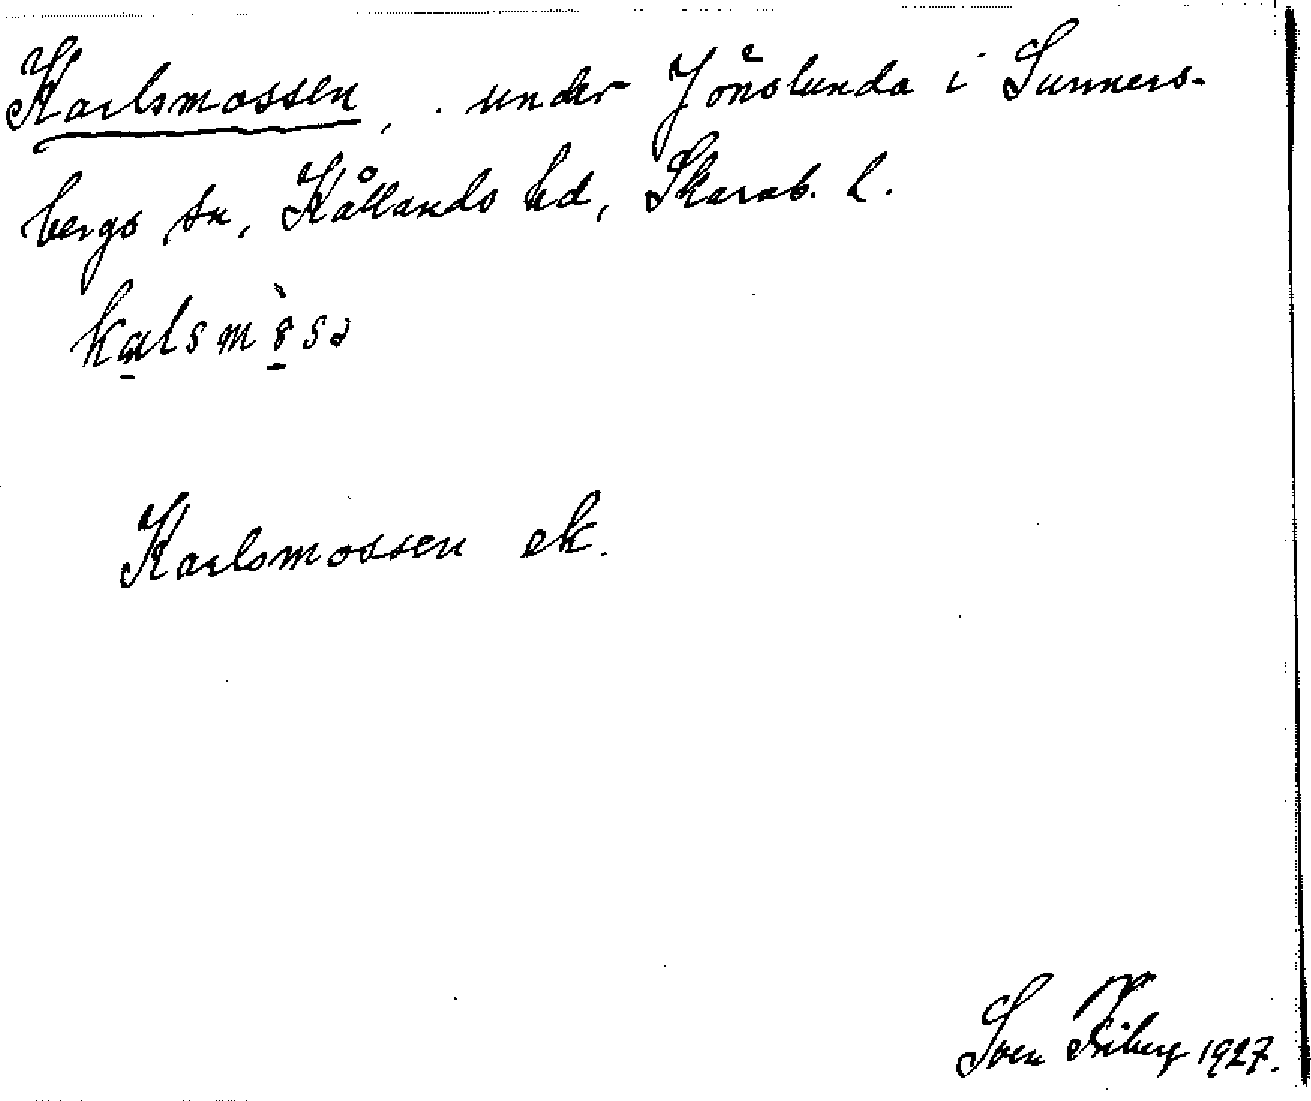 Karlsmossen, under Jönslunda i Sunners-
bergs sn, Kållands hd, Skarab. l.
Karlsmossen ek.
Sven Friberg 1927.